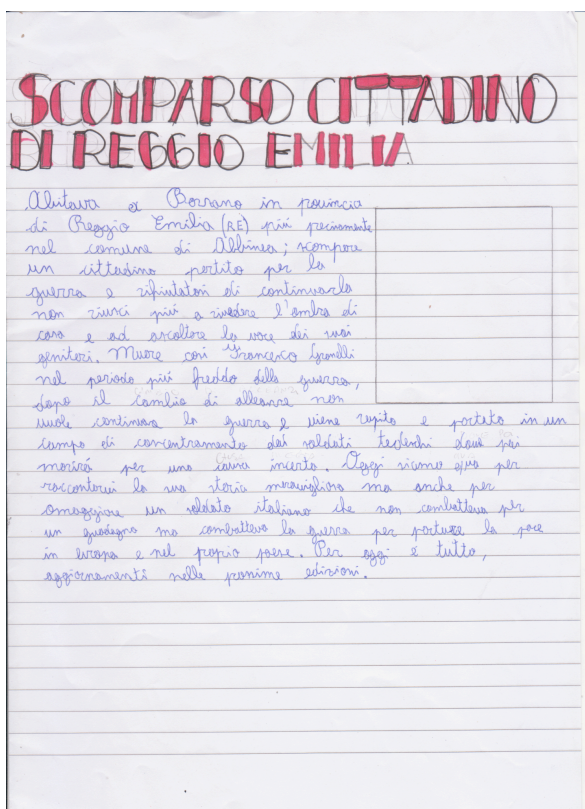 SCOMPARSO CITTADINO
DI REGGIO EMILIA
Abitava a Borzano in provincia
di Reggio Emilia (RE) più precisamente
nel comune di Albinea; scompare
un cittadino partito per la
guerra e rifiutatosi di continuarla
non riuscì più a rivedere l'ombra di
casa e ad ascoltare la voce dei suoi
genitori. Muore così Francesco
nel periodo più freddo della guerra,
dopo il cambio di alleanze non
vuole continuare la guerra e viene rapito e portato in un
campo di concentramento dai soldati tedeschi dove poi
morirà per una causa incerta. Oggi siamo qua per
raccontarvi la sua storia meravigliosa ma anche per
omaggiare un soldato italiano che non combatteva per
un guadagno ma combatteva la guerra per portare la pace
in europa e nel proprio paese. Per oggi è tutto,
aggiornamenti nelle prossime edizioni.